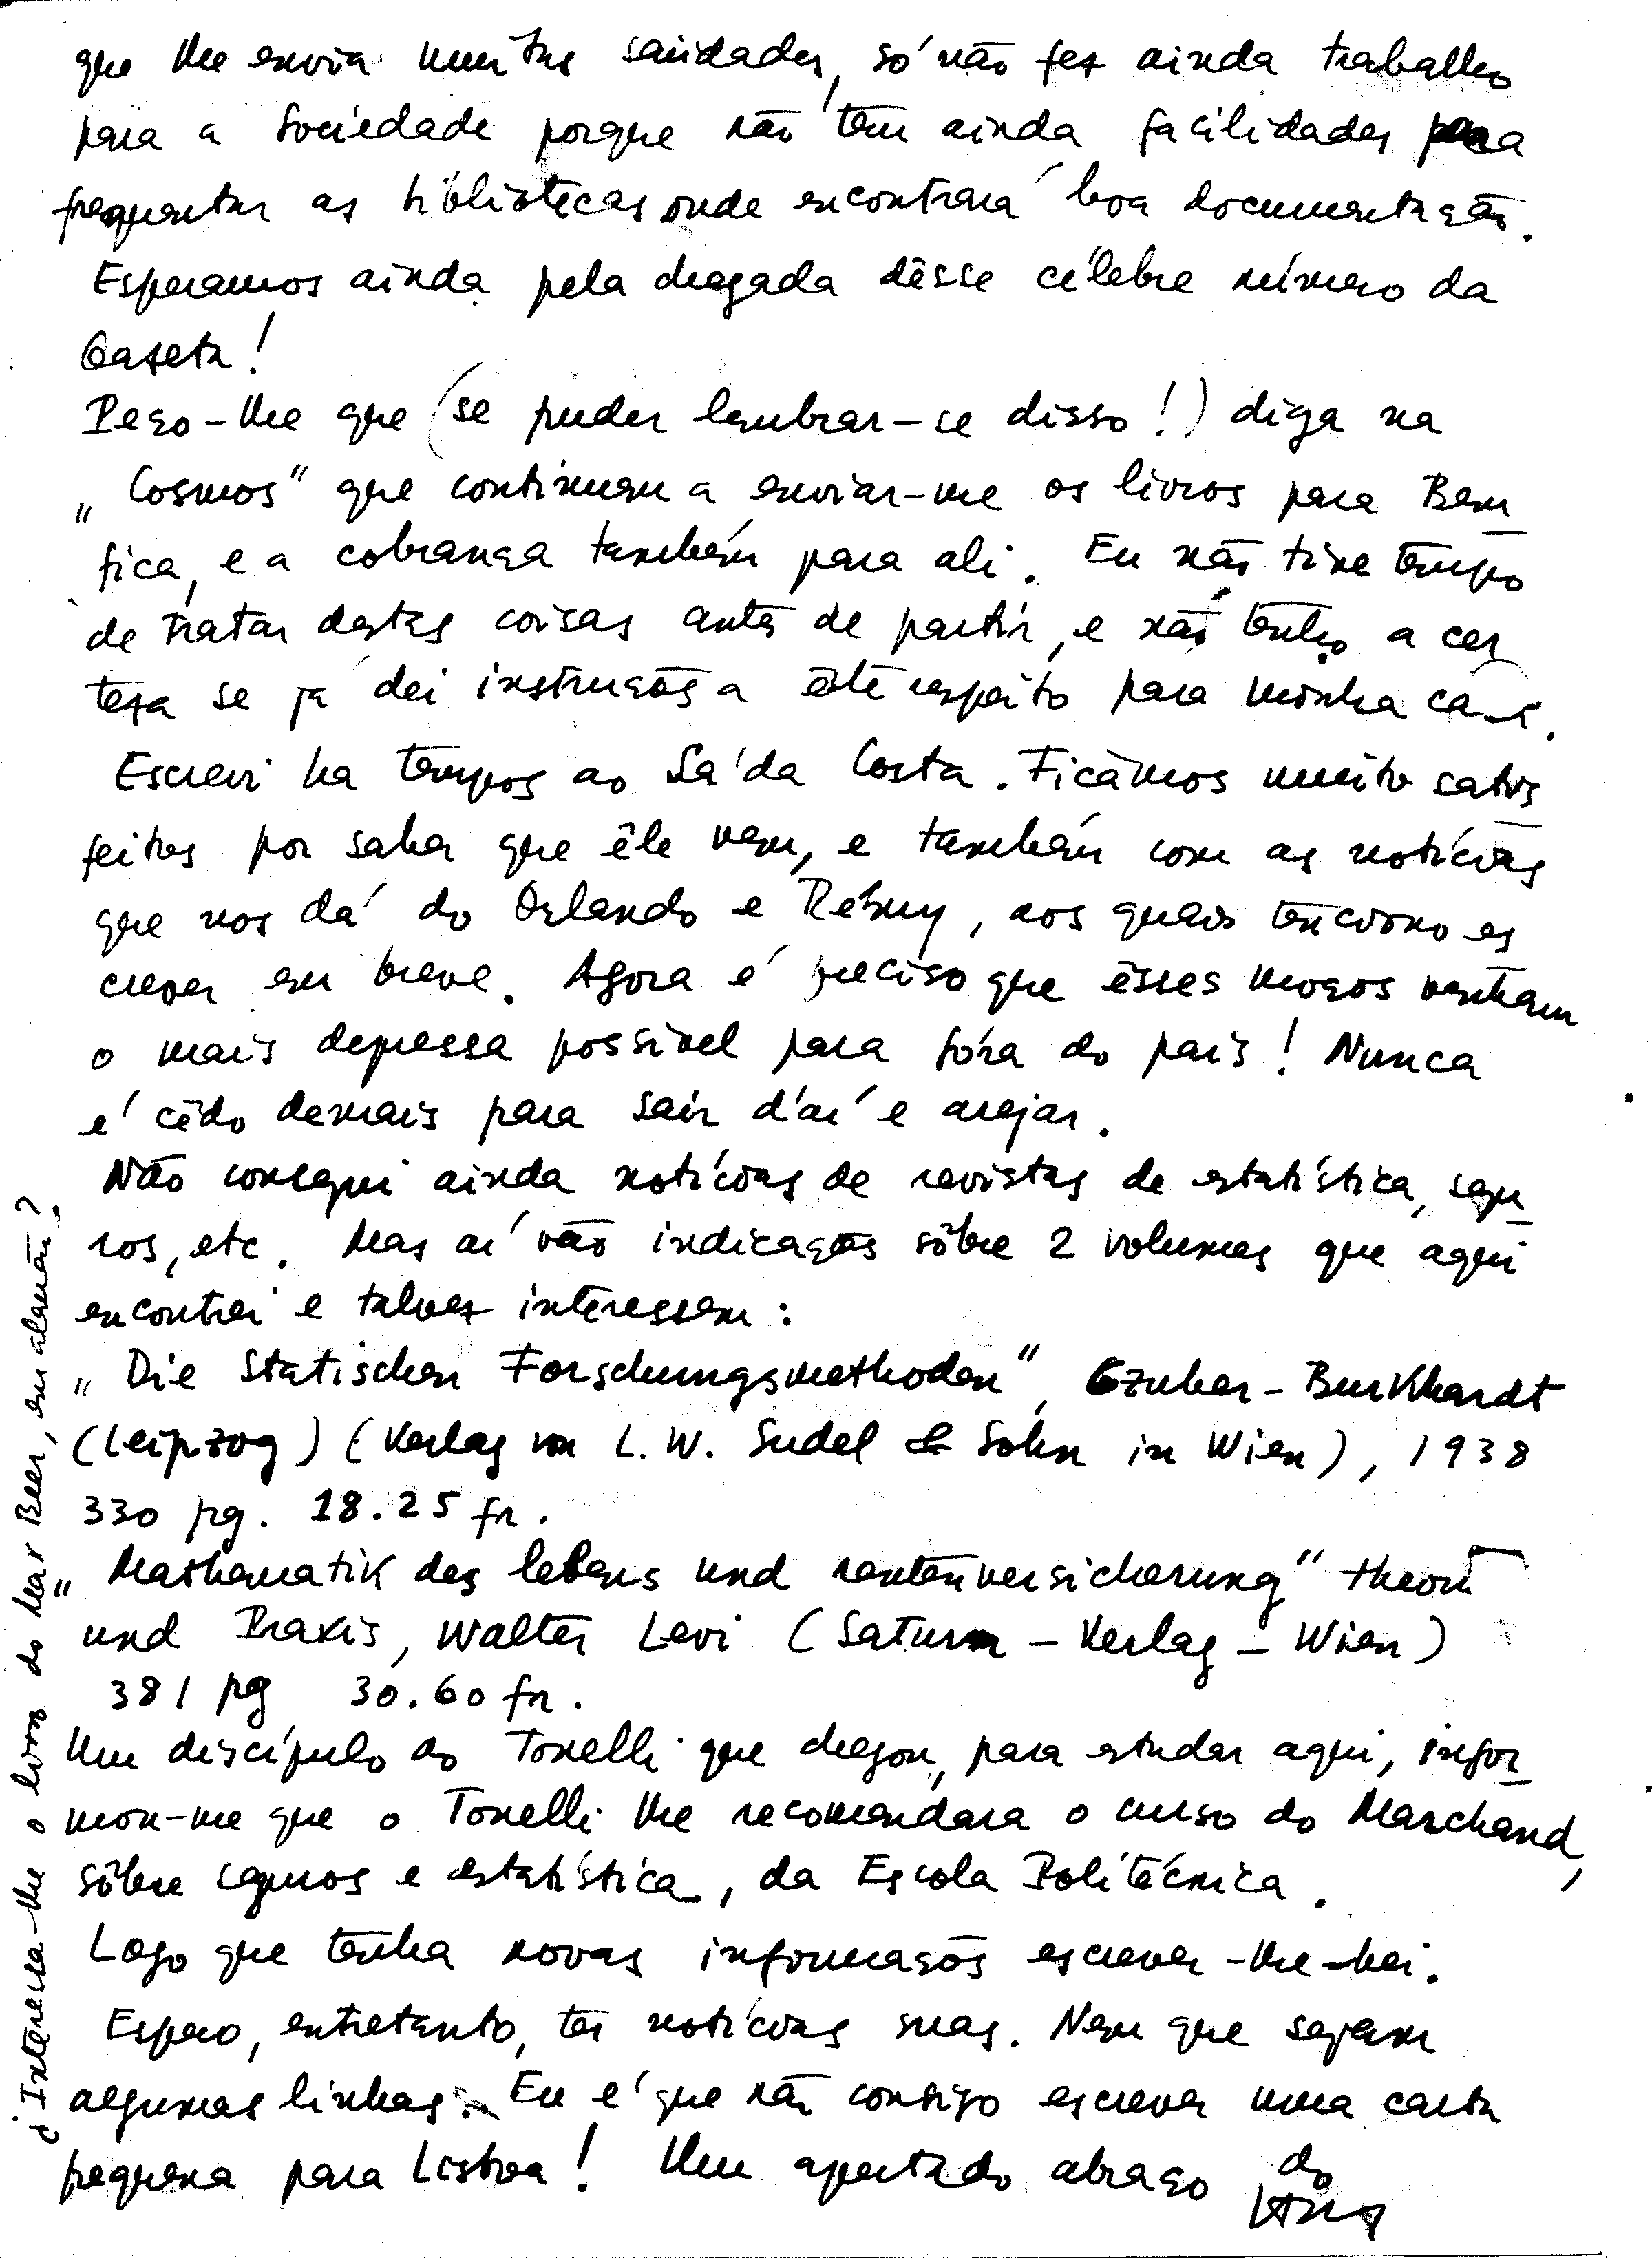 que lhe envia muitas saüdades, só não fez ainda trabalho
para a Sociedade porque não tem ainda facilidades para
frequentar as bibliotecas onde encontrará boa documentação.
Esperamos ainda pela chegada dêsse célebre número da
Gazeta!
Peço-lhe que (se puder lembrar-se disso!) diga na
„Cosmos" que continuem a enviar-me os livros para Bem
fica, e a cobrança também para ali. Eu não tive tempo
de tratar destas coisas antes de partir, e não tenho a cer
teza se já dei instruções a êste respeito para minha casa.
Escrevi ha tempos ao Sá da Costa. Ficámos muito satis
feitos por saber que êle vem, e também com as notícias
que nos dá do Orlando e Rémy, aos quais tenciono es
crever em breve. Agora é preciso que êsses moços venham
o mais depressa possível para fóra do país! Nunca
é cêdo demais para sair d'aí e arejar.
Não consegui ainda notícias de revistas de estatística, segu
ros, etc. Mas aí vão indicações sôbre 2 volumes que aqui
encontrei e talvez interessem:
„Die Statischen Forschungsmethoden", Czuber-Burkhardt
(Leipzog) (Verlag von L. W. Sudel & Sohn in Wien), 1938
330 pg. 18.25 fr.
„Mathematik des lebens und rentenversicherung" theori
und Praxis, Walter Levi (Saturn-Verlag-Wien)
381 pg 30.60 fr.
Um discípulo do Tonelli que chegou, para estudar aqui, infor
mou-me que o Tonelli lhe recomendara o curso do Marchand,
sôbre seguros e estatística, da Escola Politécnica.
Logo que tenha novas informações escrever-lhe-hei.
Espero, entretanto, ter notícias suas. Nem que sejam
algumas linhas. Eu é que não consigo escrever uma carta
pequena para Lisboa! Um apertado abraço do
¿Interessa-lhe o livro do Max Beer, em alemão?